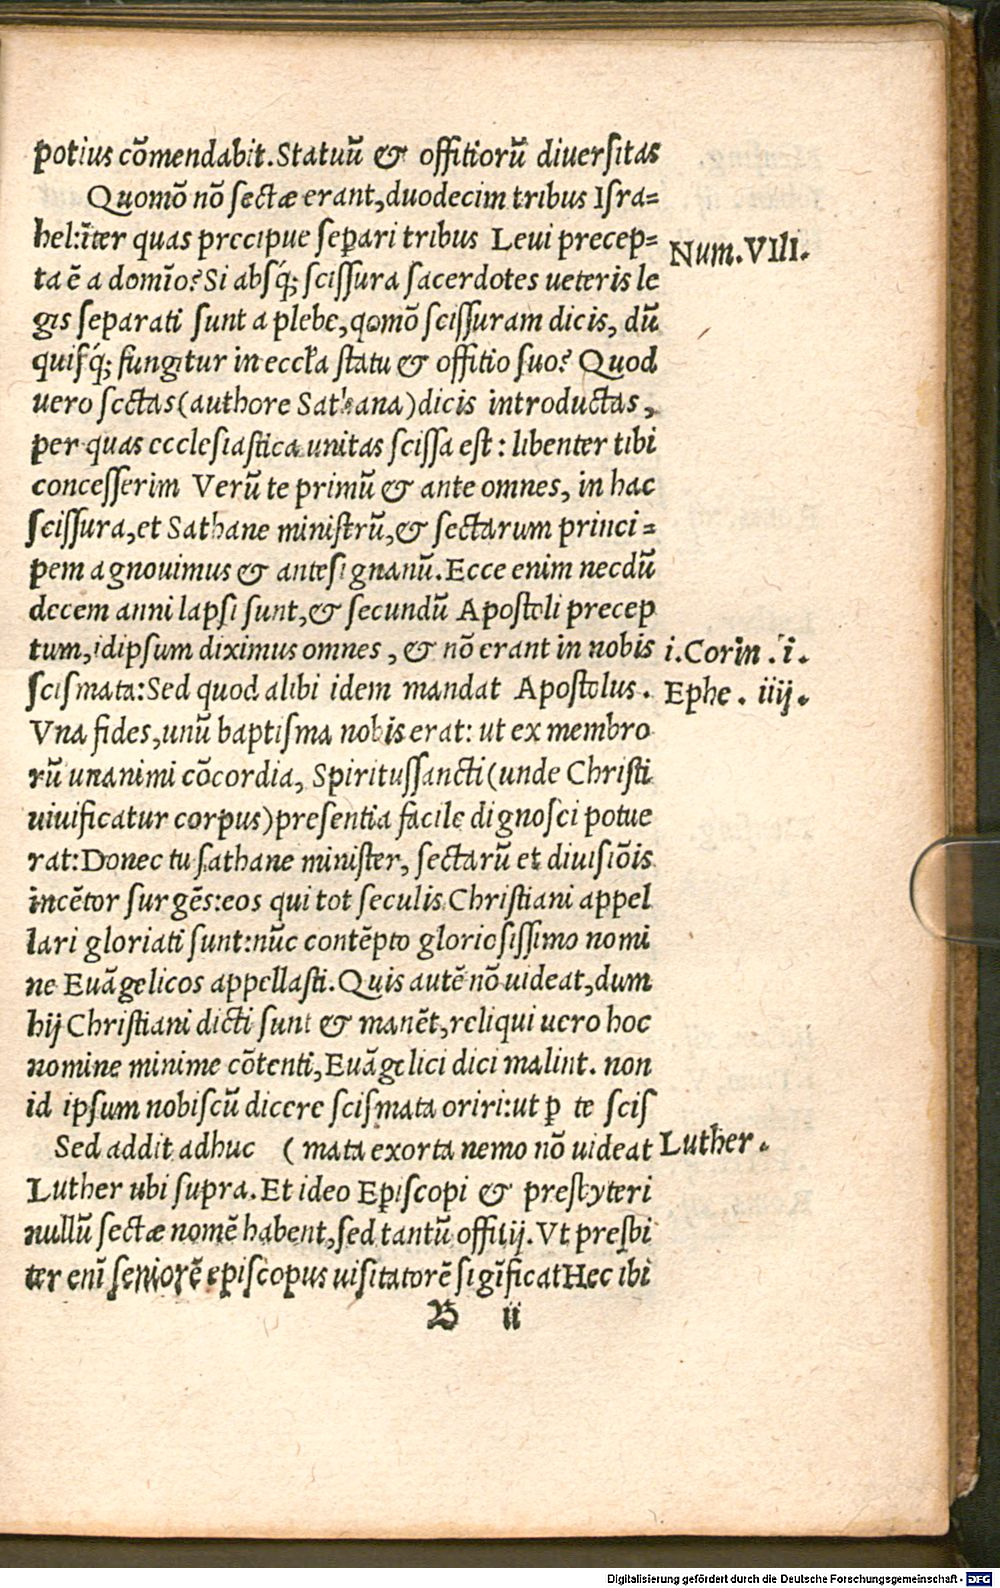 potius cõmendabit. Statuũ & offitiorũ diuerſitas
Quomõ nõ ſectæ erant, duodecim tribus Iſra=
hel: ĩter quas precipue ſepari tribus Leui precep=
Num. VIII.
ta ẽ a domĩo? Si abſq́; ſciſſura ſacerdotes ueteris le
gis ſeparati ſunt a plebe, qomõ ſciſſuram dicis, dũ
quiſq́; fungitur in eccľa ſtatu & offitio ſuo? Quod
uero ſectas (authore Sathana) dicis introductas,
per quas eccleſiaſtica unitas ſciſſa eſt: libenter tibi
conceſſerim Verũ te primũ & ante omnes, in hac
ſciſſura, et Sathane miniſtrũ, & ſectarum princi=
pem agnouimus & anteſignanũ. Ecce enim necdũ
decem anni lapſi ſunt, & ſecundũ Apoſtoli precep
tum, idipſum diximus omnes, & nõ erant in nobis
i. Corin. i.
ſciſmata: Sed quod alibi idem mandat Apoſtolus.
Ephe. iiij.
Vna fides, unũ baptiſma nobis erat: ut ex membro
rũ unanimi cõcordia, Spirituſſancti (unde Chriſti
uiuificatur corpus) preſentia facile dignoſci potue
rat: Donec tu ſathane miniſter, ſectarũ et diuiſiõis
incẽtor ſurgẽs: eos qui tot ſeculis Chriſtiani appel
lari gloriati ſunt: nũc contẽpto glorioſiſſimo nomi
ne Euãgelicos appellaſti. Quis autẽ nõ uideat, dum
hij Chriſtiani dicti ſunt & manẽt, reliqui uero hoc
nomine minime cõtenti, Euãgelici dici malint. non
id ipſum nobiſcũ dicere ſciſmata oriri: ut ꝑ te ſciſ
Sed addit adhuc ( mata exorta nemo nõ uideat
Luther.
Luther ubi ſupra. Et ideo Epiſcopi & preſbyteri
nullũ ſectæ nomẽ habent, ſed tantũ offitij. Vt preſbi
ter enĩ ſeniorẽ epiſcopus uiſitatorẽ ſigĩficat Hec ibi
B ii
Digitalisierung gefördert durch die Deutsche Forschungsgemeinschaft - DFG